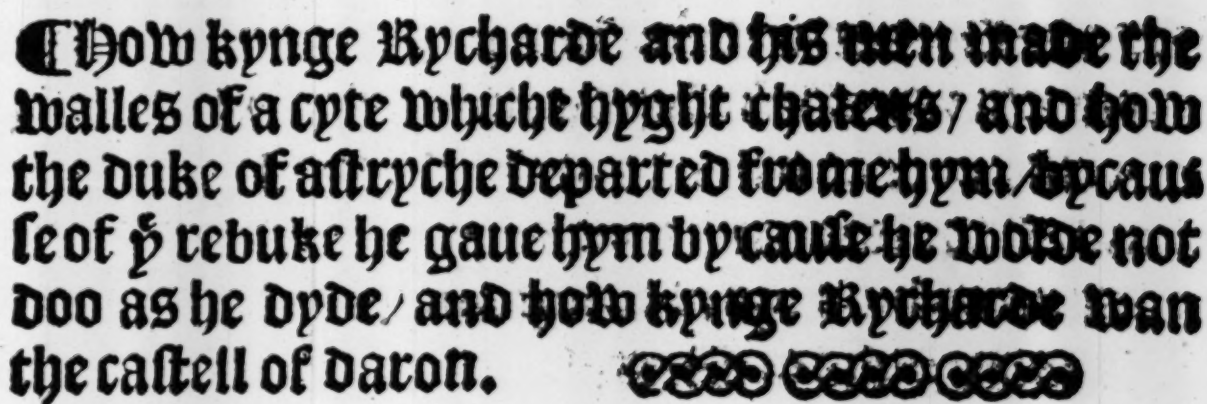 ¶How kynge Rycharde and his men made the
walles of a cyte whiche hyght chaterrs / and how
the duke of astryche departed frome hym / bycaus
se of yͤ rebuke he gaue hym by cause he wolde not
doo as he dyde / and how kynge Rycharde wan
the castell of daron.